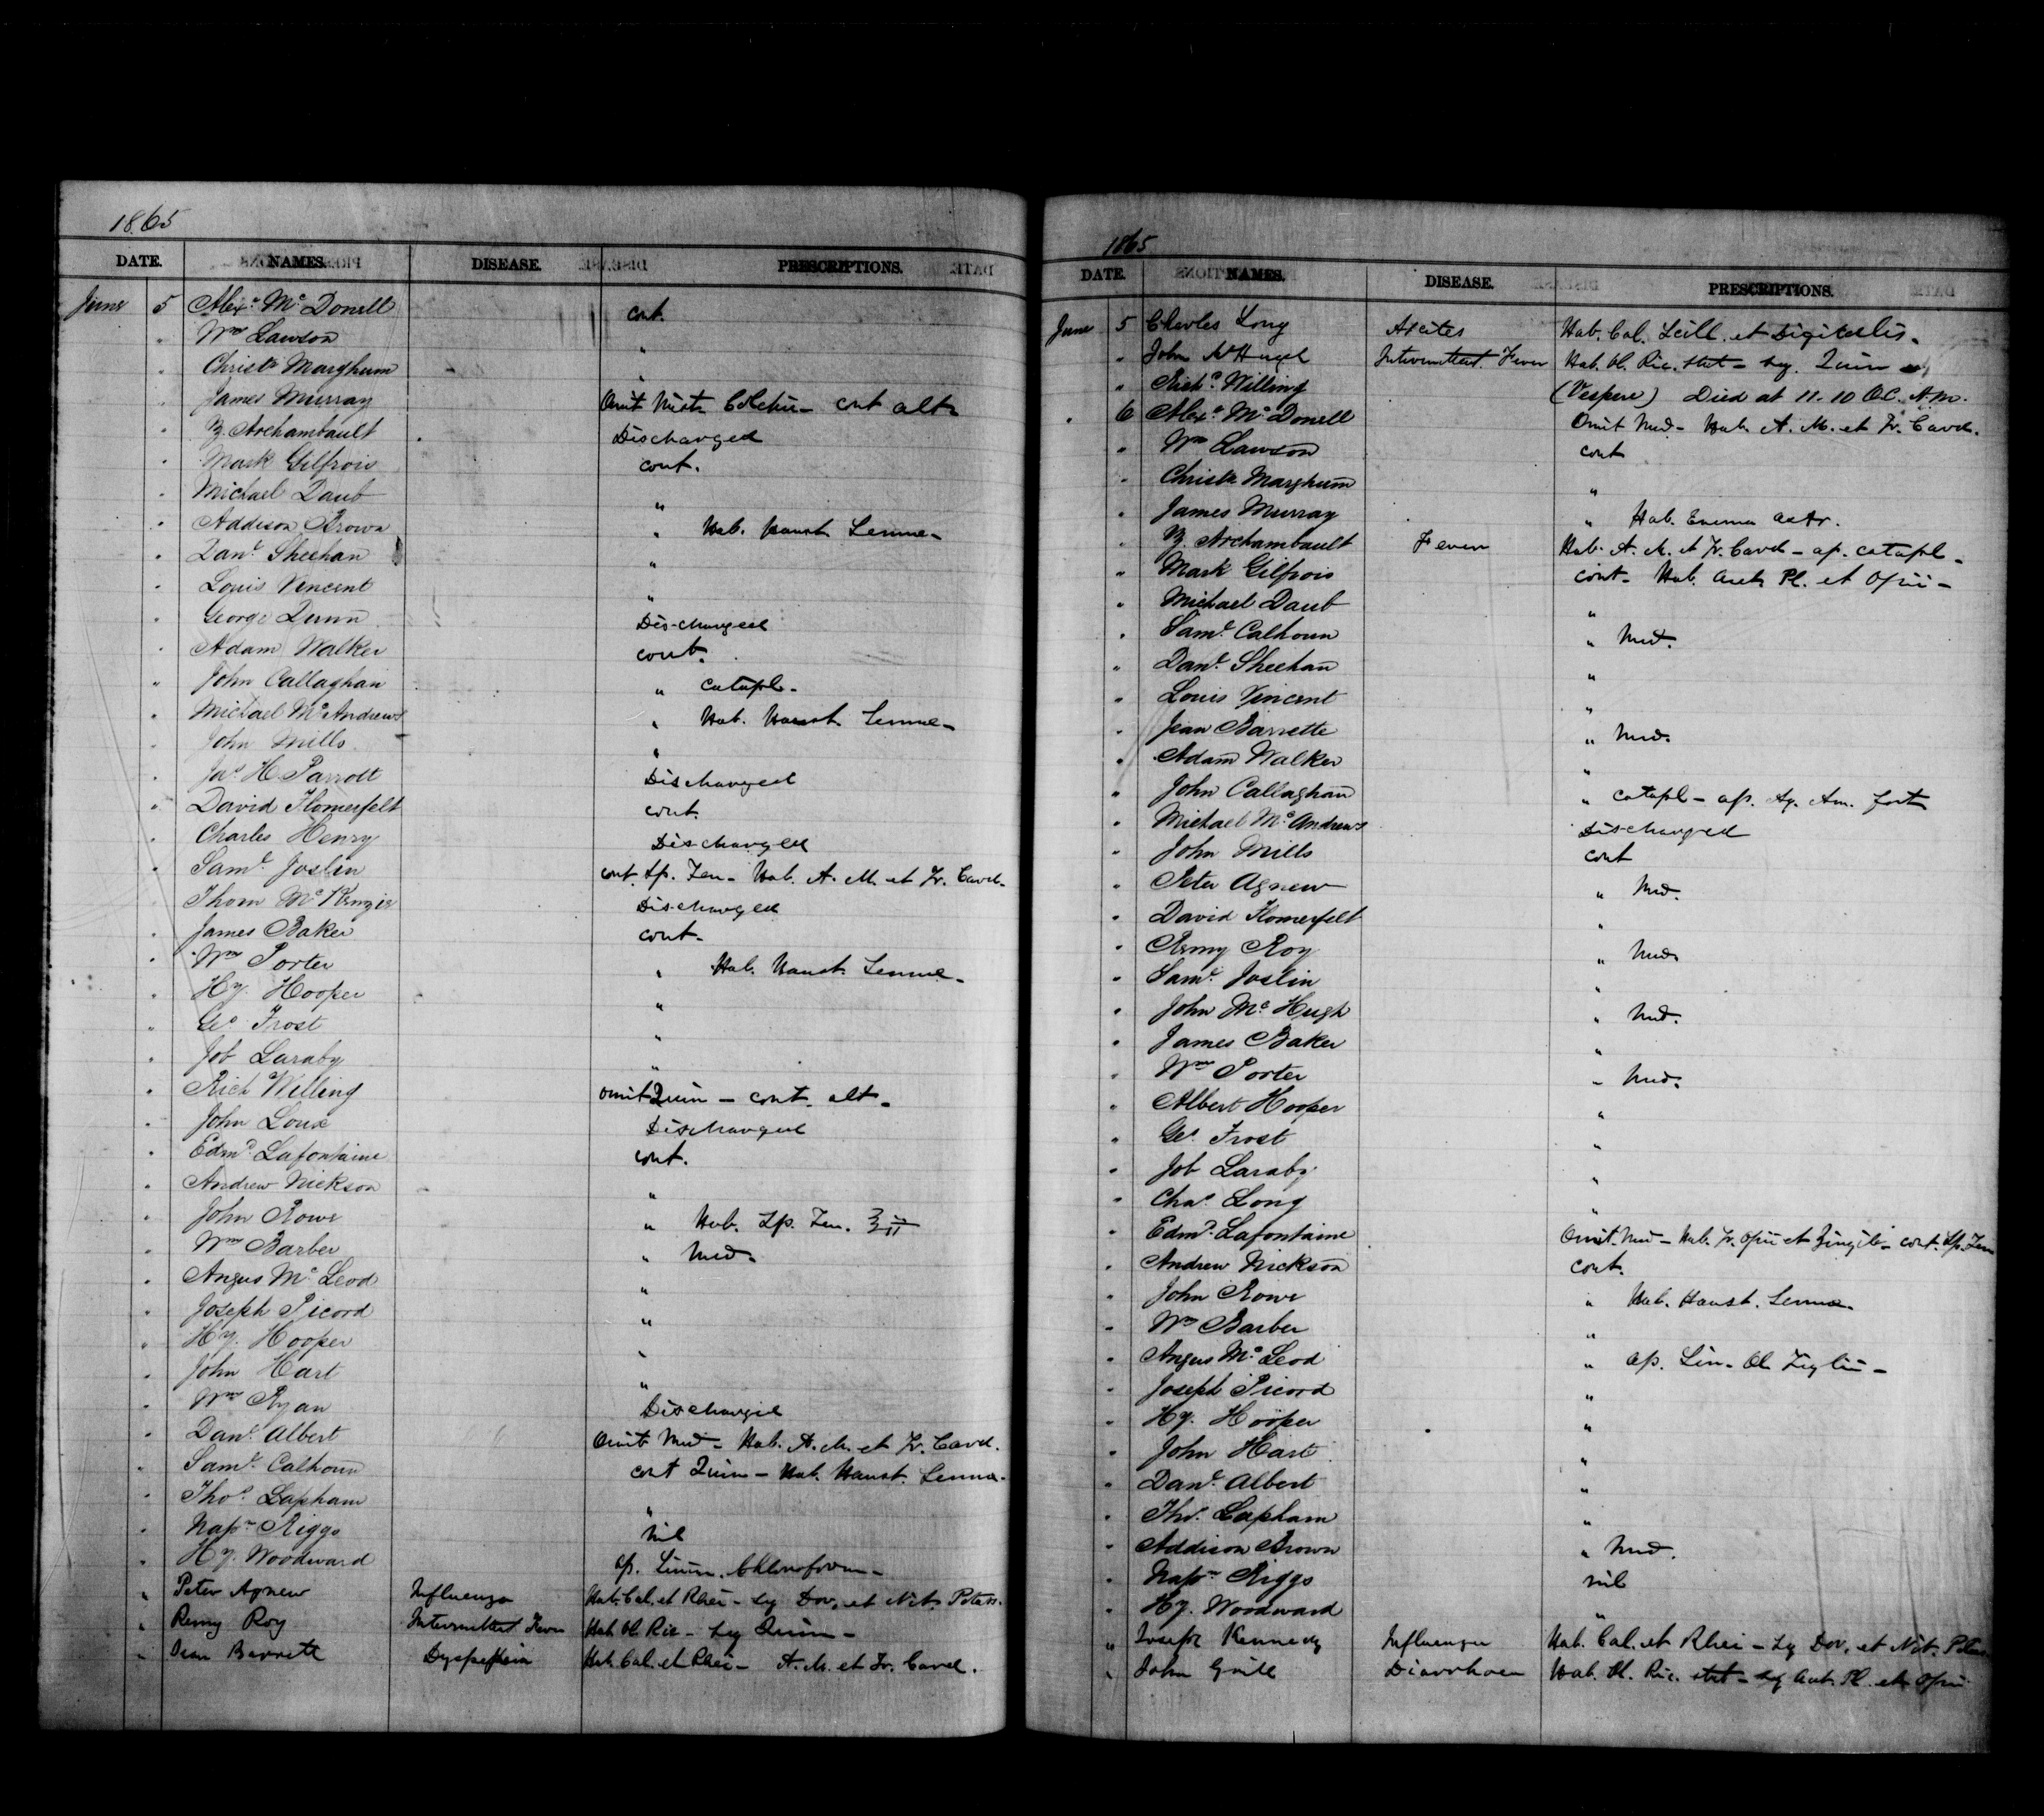 1865
DATE. NAMES. DISEASE. PRESCRIPTIONS.
June 5 Alexr. Mc Donell cont.
" Wm Lawson "
" Christr Marghum "
" James Murray Omit Mist. Colchic - cont alts
" Z. Archambault Discharged
" Mark Gilfrois cont.
" Michael Daub "
" Addison Brown " Hab. Haust. Sennae -
" Danl. Sheehan "
" Louis Vincent "
" George Dunn Discharged
" Adam Walker cont.
" John Callaghan " catapl -
" Michael McAndrews " Hab. Haust. Sennae -
" John Mills "
" Jas. H. Parrott Discharged
" David Homerfelt cont.
" Charles Henry Discharged
" Saml. Joslin cont. Sp. Jen - Hab. A. M. et Tr. Card.
" Thom Mc Kenzie Discharged
" James Baker cont -
" Wm Porter " Hab. Haust. Sennae -
" Hy. Hooper "
" Geo Frost "
" Job Laraby "
" Rich Willing omit Quin - cont. alt -
" John Loux Discharged
" Edmd. Lafontaine cont.
" Andrew Nickson "
" John Rowe " Hab. Sp. Jen. ʒii
" Wm Barber " Med.
" Angus Mc Leod "
" Joseph Picord "
" Hy. Hooper "
" John Hart "
" Wm Ryan Discharged
" Danl. Albert Omit Med - Hab. A. M. et Tr. Card.
" Saml. Calhoun cont Quin - Hab. Haust. Sennae -
" Thos. Lapham "
" Napn. Riggs nil
" Hy. Woodward ap. Linim. Chloroform -
" Peter Agnew Influenza Hab. Cal. et Rhei - Sy Dov. et Nit. Potass.
" Remy Roy Intermittent Fever Hab Ol. Ric - Sy Quin -
" Jean Barrett Dyspepsia Hab. Cal. et Rhei - A. M. et Tr. Card.
1865
DATE. NAMES. DISEASE. PRESCRIPTIONS.
June 5 Charles Long Ascites Hab. Cal. Scill. et Digitalis.
" John McHugh Intermittent Fever Hab. Ol. Ric. stat - Sy. Quin
" Richd. Willing (Vespere) Died at 11.10 O.C. A.M.
" 6 Alexr. Mc Donell Omit Med - Hab. A. M. et Tr. Card.
" Wm Lawson cont
" Christr Marghum "
" James Murray " Hab. Enema
" Z. Archambault Fever Hab. A. M. et Tr. Card - ap. catapl -
" Mark Gilfrois cont - Hab. Acet. Pl. et Opii -
" Michael Daub "
" Saml. Calhoun " Med.
" Danl. Sheehan "
" Louis Vincent "
" Jean Barrette " Med.
" Adam Walker "
" John Callaghan " catapl - ap. Aq. Am. fort
" Michael Mc Andrews Discharged
" John Mills cont
" Peter Agnew " Med.
" David Homerfelt "
" Remy Roy " Med.
" Saml. Joslin "
" John Mc Hugh " Med.
" James Baker "
" Wm Porter " Med.
" Albert Hooper "
" Geo. Frost "
" Job Laraby "
" Chas Long "
" Edmd. Lafontaine Omit. Med - Hab. Tr. Opii et Zingib - cont. Sp. Jen
" Andrew Nickson cont.
" John Rowe " Hab. Haust. Sennae.
" Wm Barber "
" Angus Mc Leod " ap. Lin - Ol Tiglii -
" Joseph Picord "
" Hy. Hooper "
" John Hart "
" Danl. Albert "
" Thos. Lapham "
" Addison Brown " Med.
" Napn. Riggs nil
" Hy. Woodward "
" Joseph Kennedy Influenza Hab. Cal. et Rhei - Sy Dov. et Nit. Potass.
" John Grill Diarrhoea Hab. Ol. Ric. stat - Sy Acet. Pl. et Opii